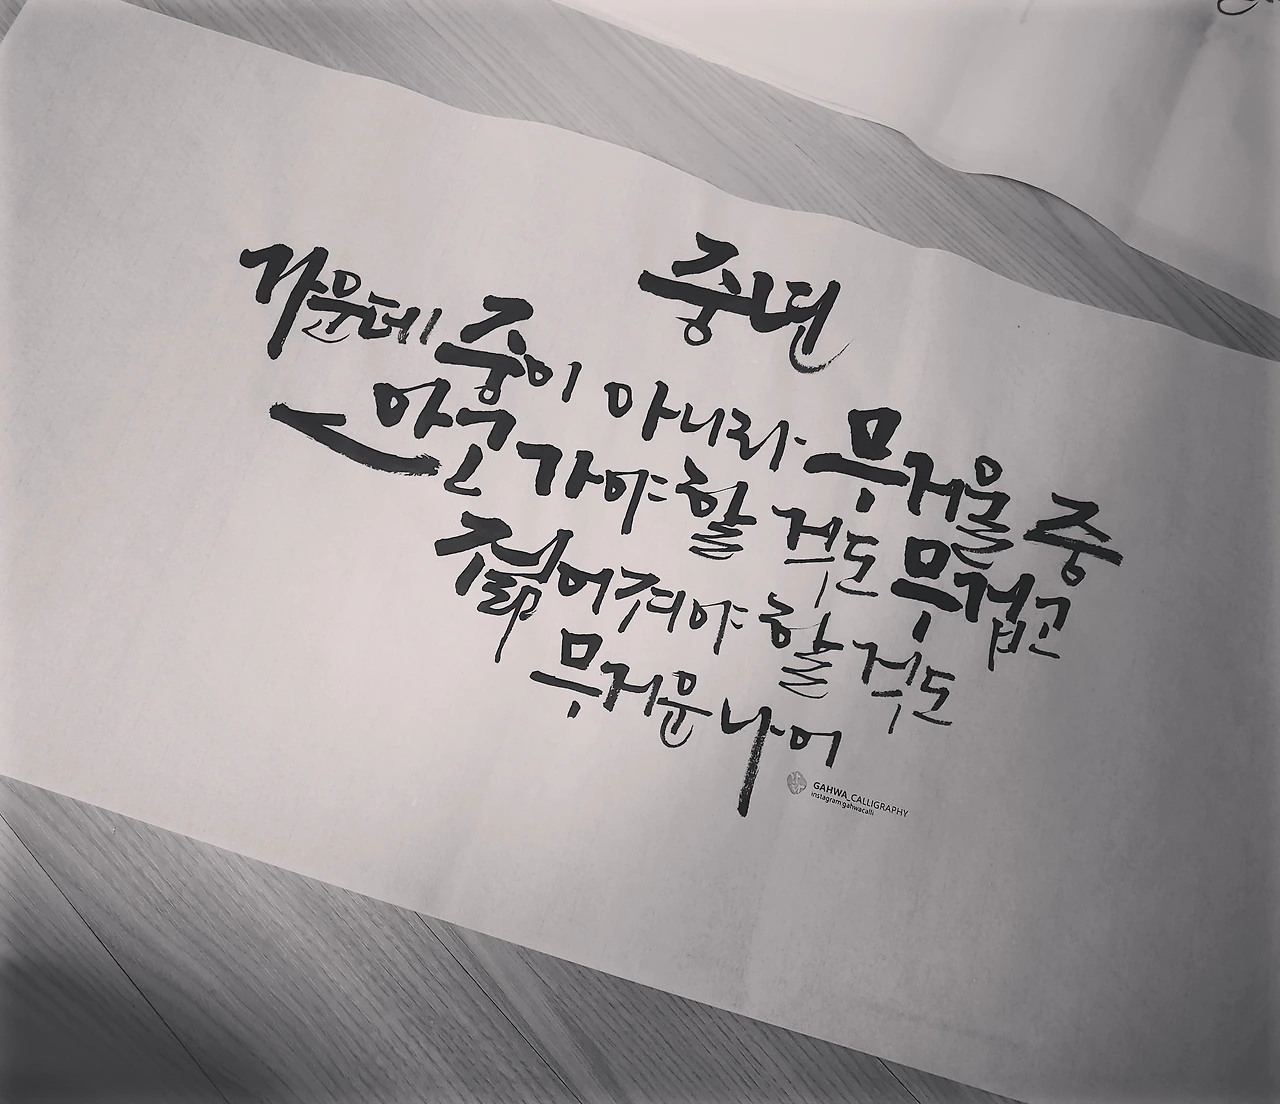 중년
가운데 중이 아니라 무거울 중
안고 가야 할 것도 무겁고
짊어져야 할 것도
무거운 나이
GAHWA_CALLIGRAPHY
instagram:gahwacalli